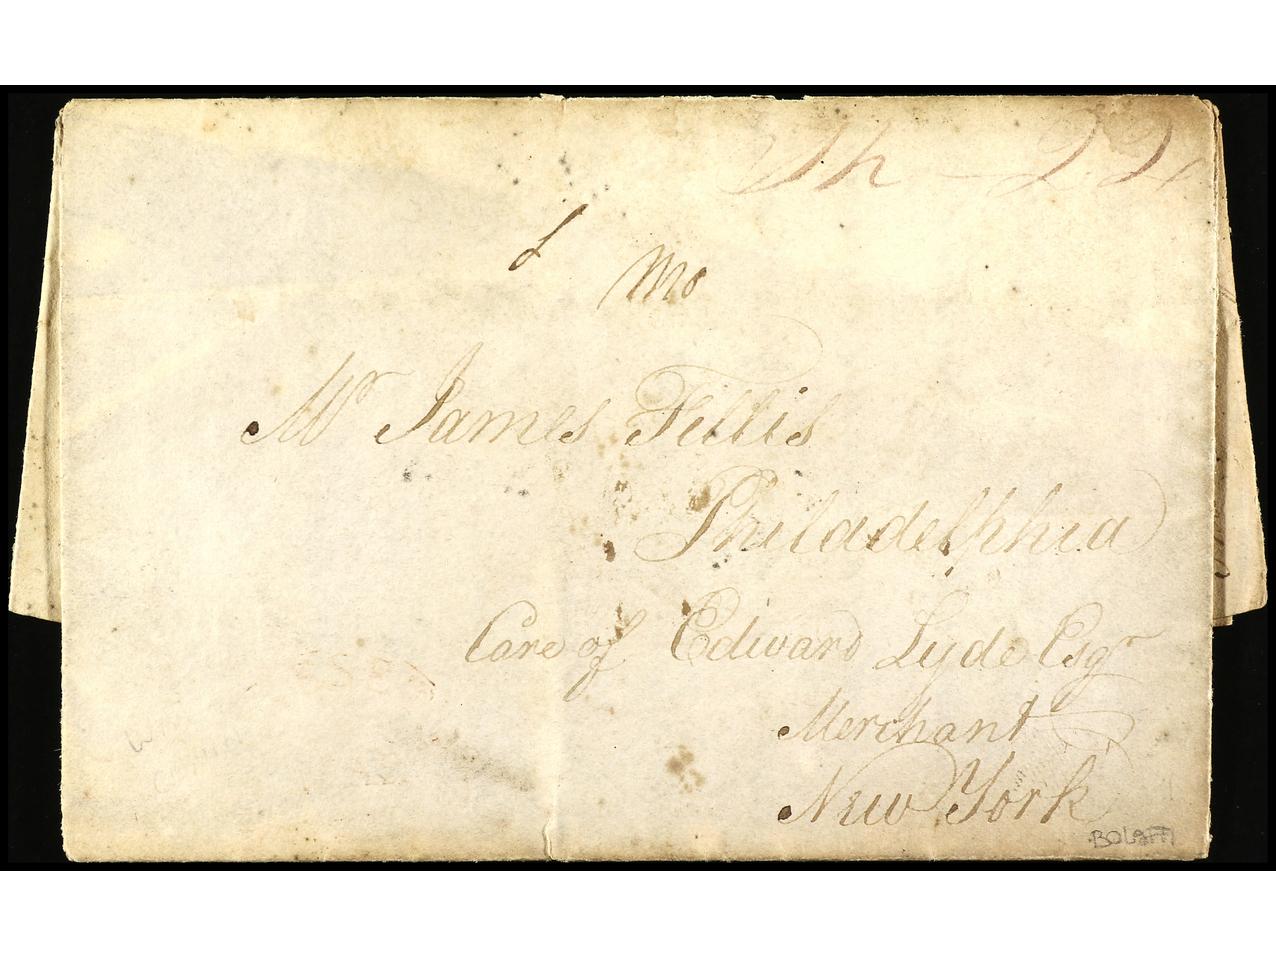 Sh - 22
Mo
Mr James Fettis
Philadelphia
Care of Edward Lyde Esqr
Merchant
New York
BOLAFFI